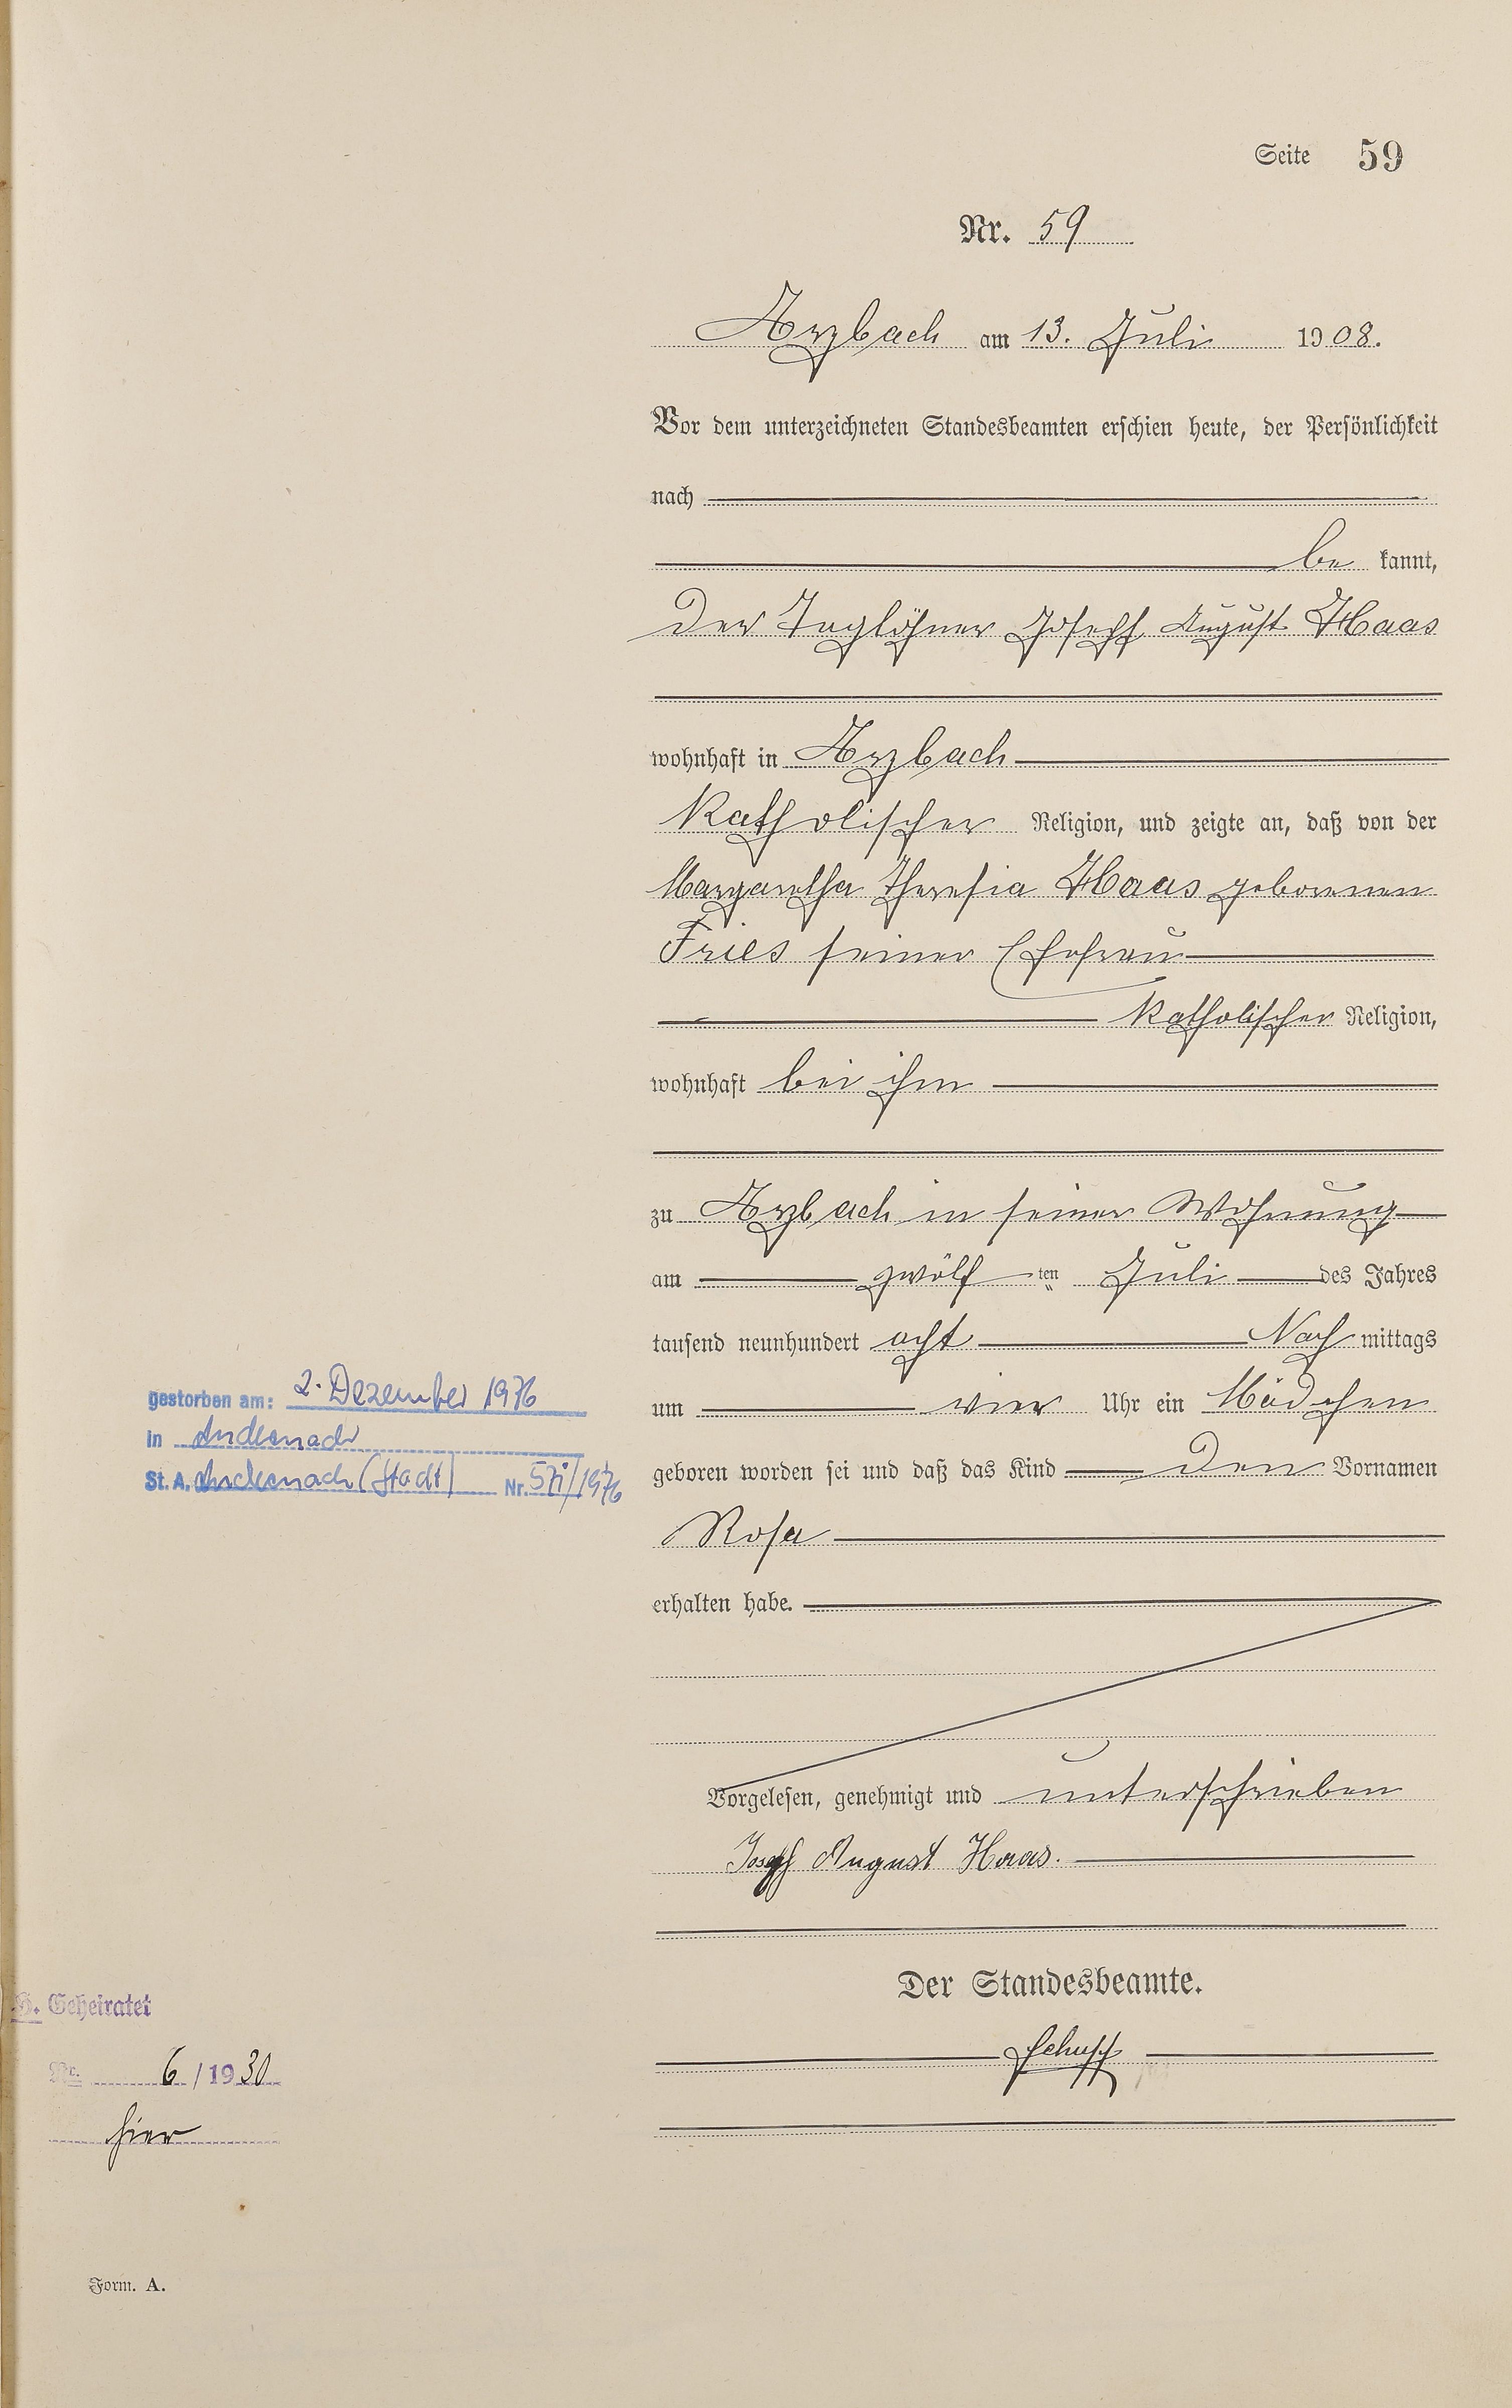 Seite 59
Nr. 59
Arzbach am 13. Juli 1908.
Vor dem unterzeichneten Standesbeamten erschien heute, der Persönlichkeit
nach
be kannt,
der Taglöhner Joseph August Haas
wohnhaft in Arzbach
katholischer Religion, und zeigte an, daß von der
Margaretha Theresia Haas geborenen
Fries seiner Ehefrau
katholischer Religion,
wohnhaft bei ihm
zu Arzbach in seiner Wohnung
am zwölf ten Juli des Jahres
tausend neunhundert acht Nach mittags
um vier Uhr ein Mädchen
geboren worden sei und daß das Kind den Vornamen
Rosa
erhalten habe.
Vorgelesen, genehmigt und unterschrieben
Joseph August Haas.
Der Standesbeamte.
Schupp
gestorben am: 2. Dezember 1976
in Andernach
St. A. Andernach (Stadt) Nr. /1976
H. Geheiratet
Nr. 6 / 1930
hier
Form. A.